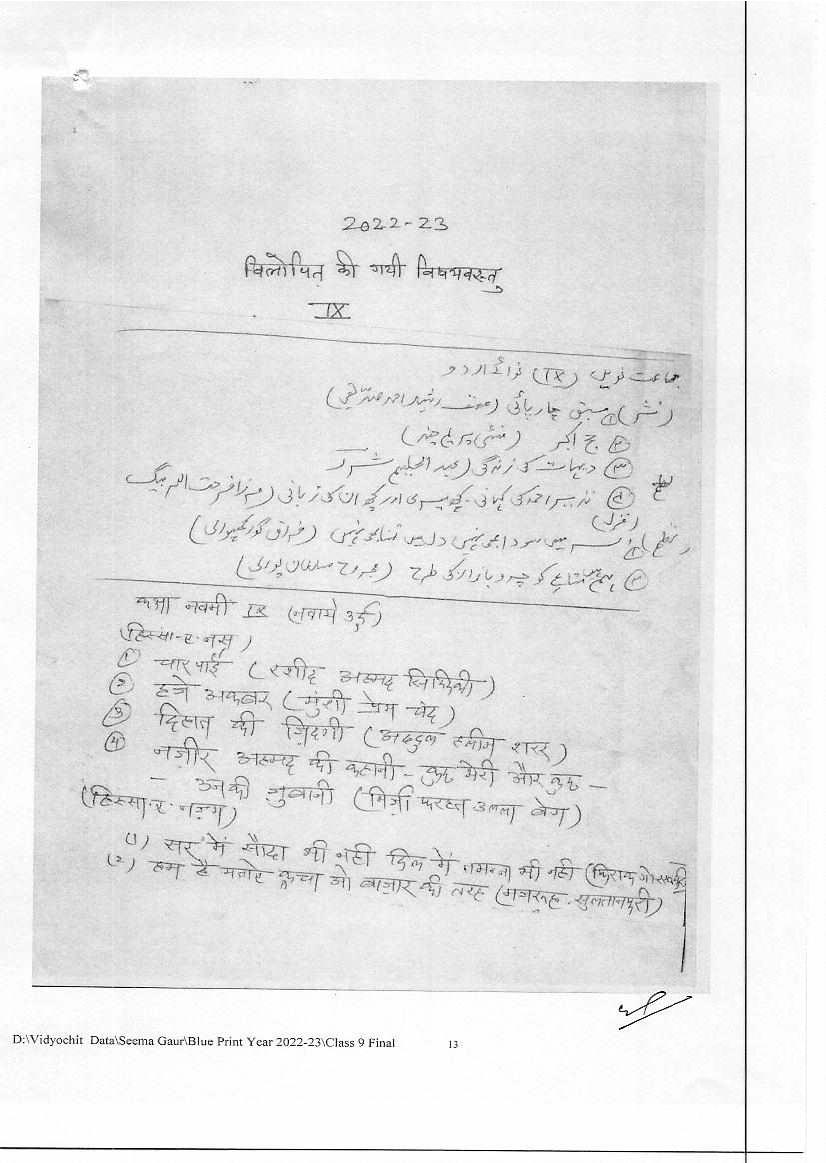 2022-23
विलोपित की गयी विषयवस्तु
IX
جماعت نویں (IX) نوائے اردو
(نثر) ① سبق چارپائی (مصنف رشید احمد صدیقی)
② حج اکبر (منشی پریم چند)
③ دیہات کی زندگی (عبد الحلیم شرر
④ نذیر احمد کی کہانی۔ کچھ میری اور کچھ ان کی زبانی (مرزا فرحت اللہ بیگ
(غزل)
نظم ① سر میں سودا بھی نہیں دل میں تمنا بھی نہیں (فراق گورکھپوری)
② ہم ہیں متاع کوچہ و بازار کی طرح (مجروح سلطان پوری)
कक्षा नवमी IX (नवाये उर्दू)
(हिस्सा-ए-नस्र)
① चारपाई (रशीद अहमद सिद्दिकी)
② हजे अकबर (मुंशी प्रेम चंद)
③ दिहात की ज़िंदगी (अब्दुल हलीम शरर)
④ नज़ीर अहमद की कहानी - कुछ मेरी और कुछ -
- उनकी ज़ुबानी (मिर्ज़ा फरहत उल्ला बेग)
(हिस्सा-ए-नज़्म)
(1) सर में सौदा भी नही दिल में तमन्ना भी नही (फ़िराक गोरखपुरी
(2) हम है मताऐ कूचा ओ बाज़ार की तरह (मजरूह सुलतानपुरी)
D:\Vidyochit Data\Seema Gaur\Blue Print Year 2022-23\Class 9 Final 13